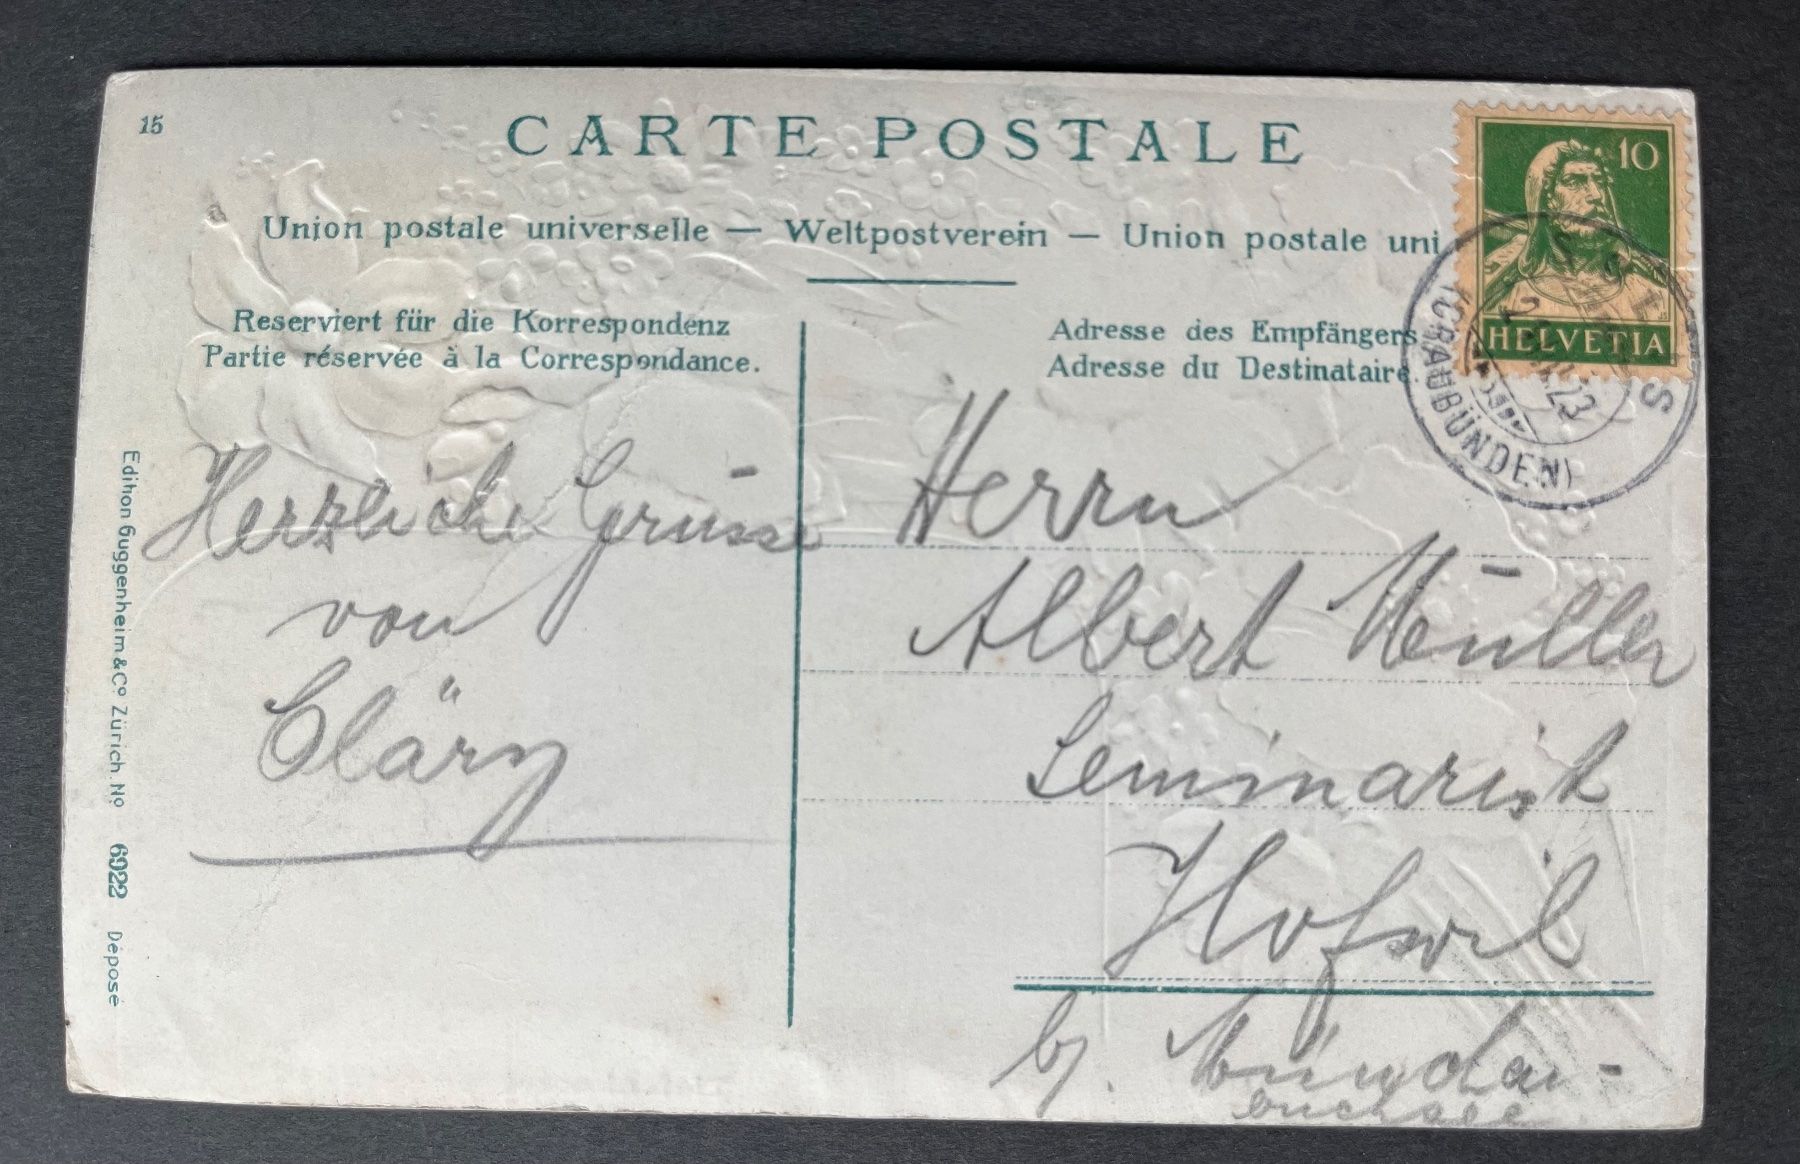 15
CARTE POSTALE
10
HELVETIA
Union postale universelle — Weltpostverein — Union postale uni
(GRAUBÜNDEN)
23
Reserviert für die Korrespondenz
Partie réservée à la Correspondance.
Adresse des Empfängers
Adresse du Destinataire
Herzliche Grüsse
von
Cläry
Herrn
Albert Müller
Seminarist
Hofwil
bj. München-
buchsee
Edition Guggenheim & Cº Zürich. Nº 6922 Déposé